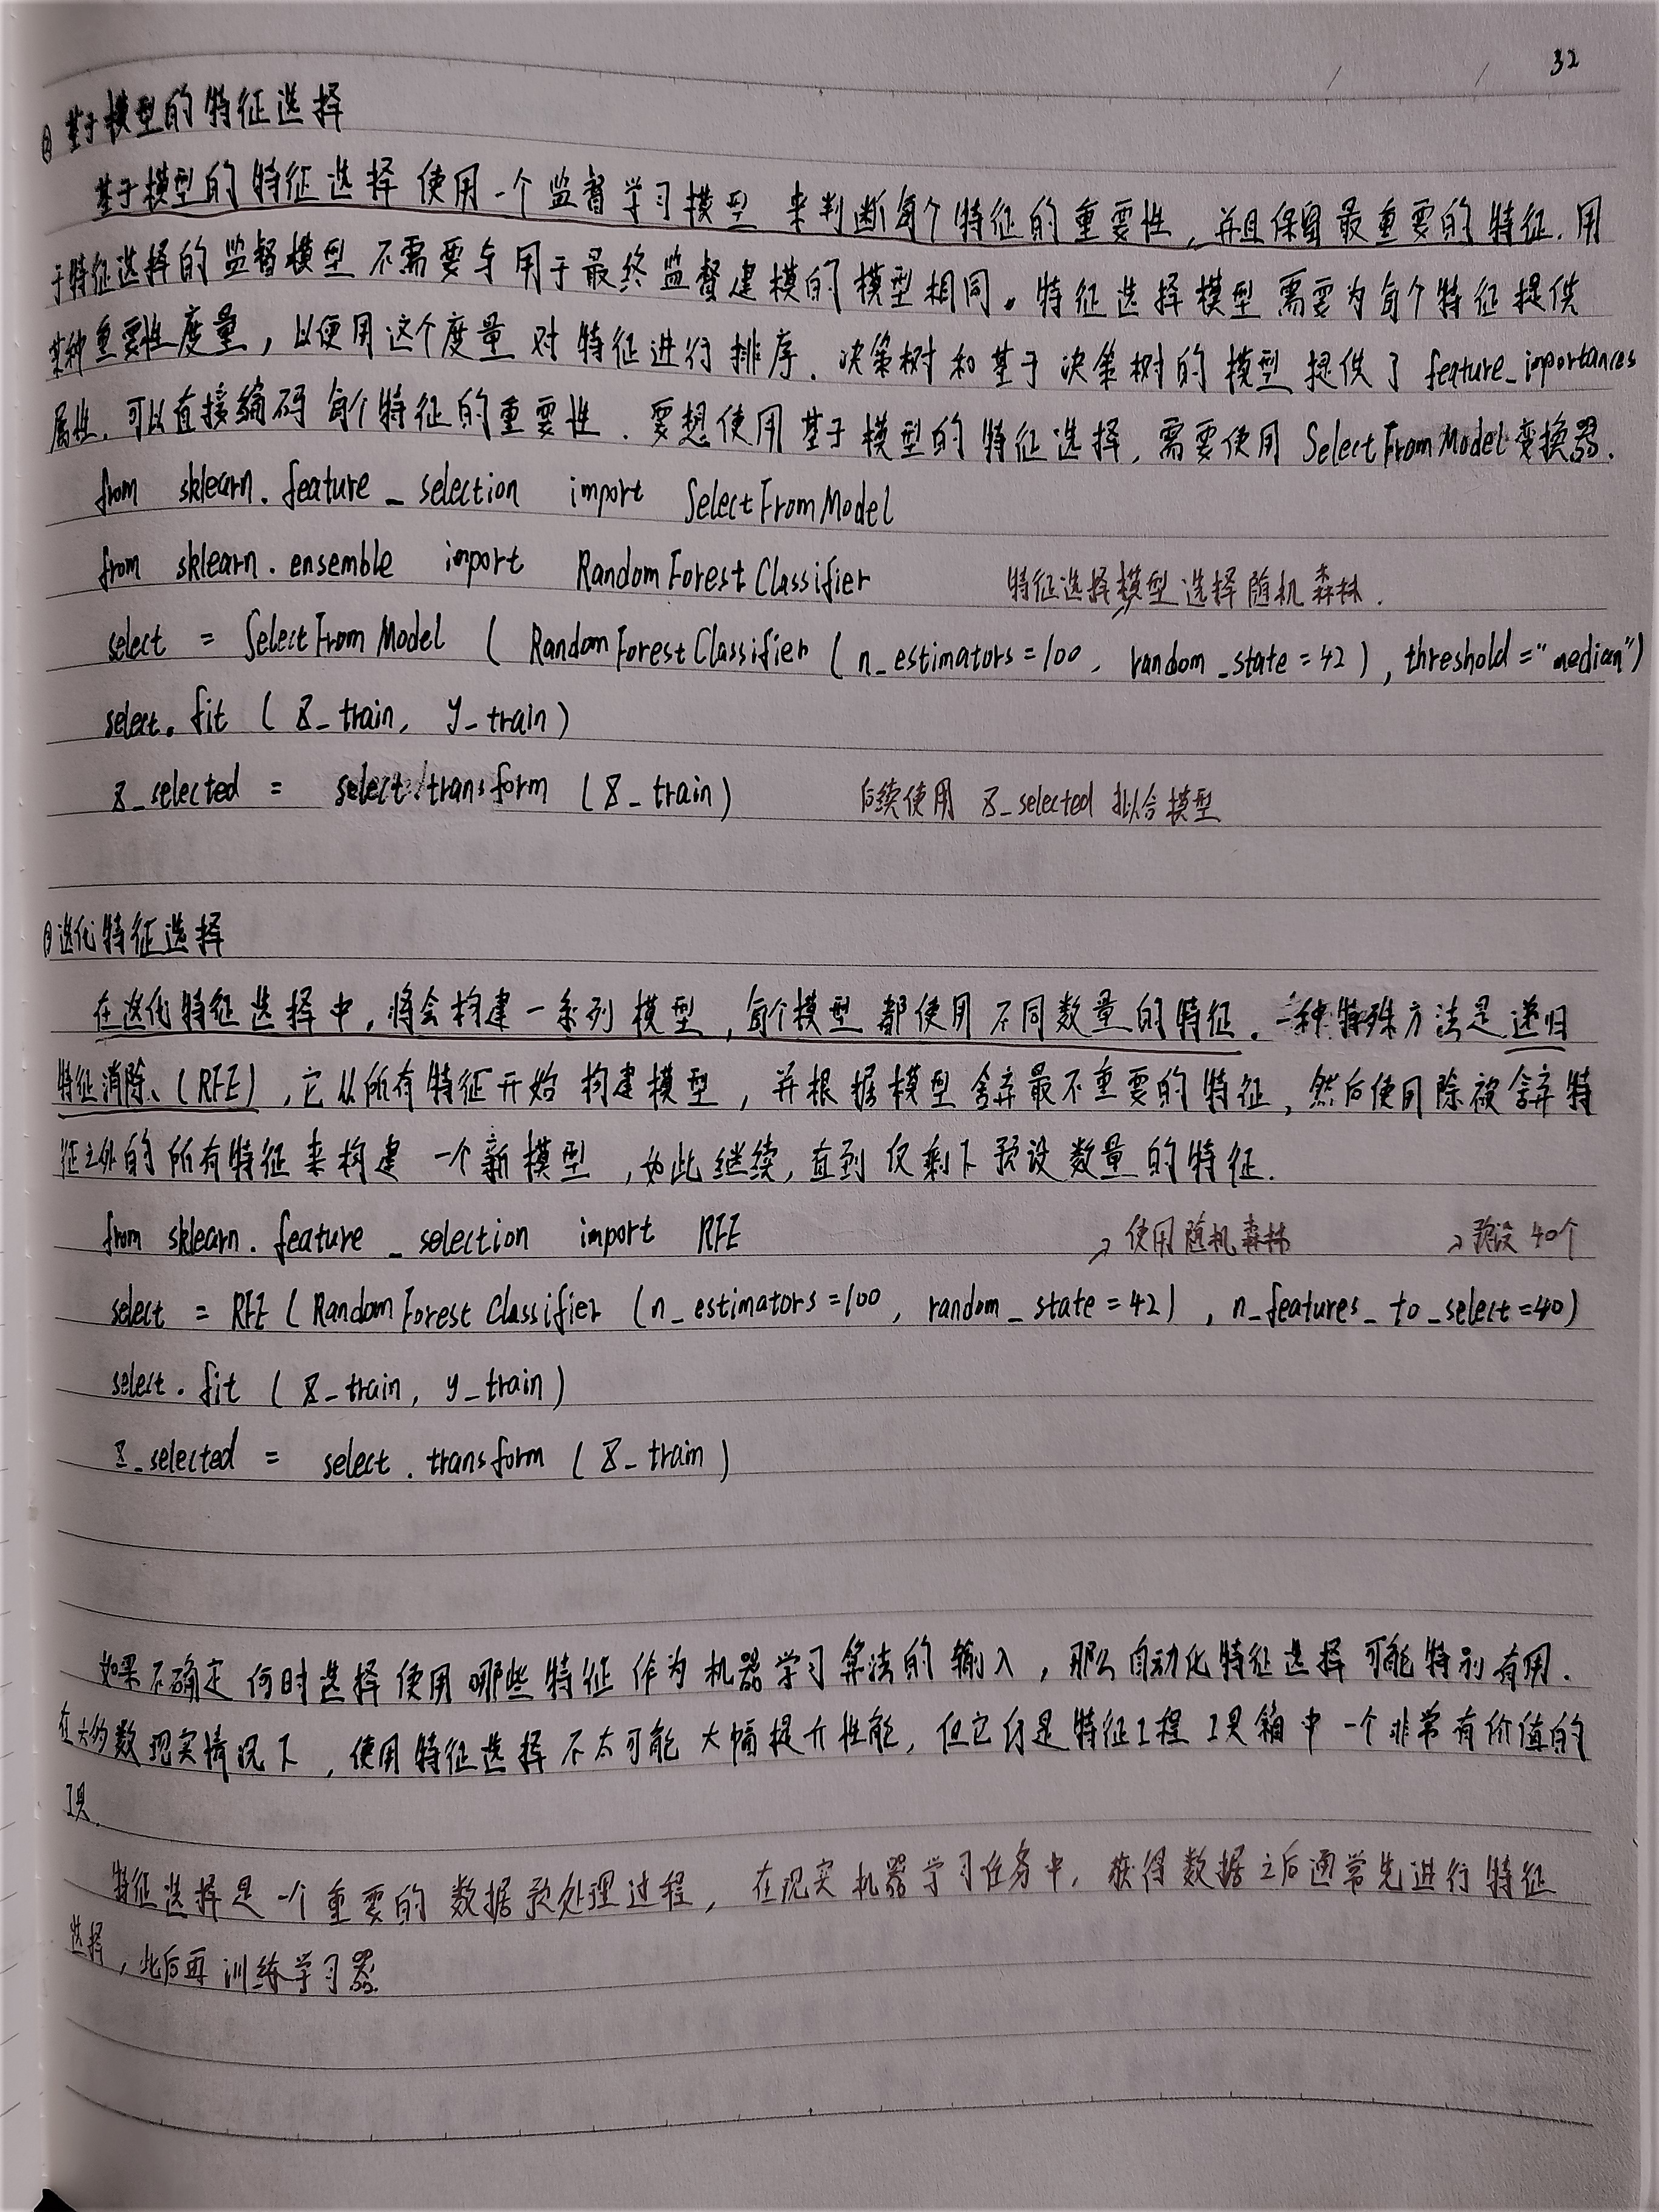 32
② 基于模型的特征选择
基于模型的特征选择使用一个监督学习模型来判断每个特征的重要性,并且保留最重要的特征.用
于特征选择的监督模型不需要与用于最终监督建模的模型相同。特征选择模型需要为每个特征提供
某种重要性度量,以便用这个度量对特征进行排序.决策树和基于决策树的模型提供了 feature_importances
属性.可以直接编码每个特征的重要性.要想使用基于模型的特征选择,需要使用 SelectFromModel 变换器.
from sklearn.feature_selection import SelectFromModel
from sklearn.ensemble import RandomForestClassifier 特征选择模型选择随机森林.
select = SelectFromModel (RandomForestClassifier (n_estimators=100, random_state=42), threshold="median")
select.fit (X_train, y_train)
X_selected = select.transform (X_train) 后续使用 X_selected 拟合模型
③ 迭代特征选择
在迭代特征选择中,将会构建一系列模型,每个模型都使用不同数量的特征.一种特殊方法是递归
特征消除、(RFE),它从所有特征开始构建模型,并根据模型舍弃最不重要的特征,然后使用除被舍弃特
征之外的所有特征来构建一个新模型,如此继续,直到仅剩下预设数量的特征.
from sklearn.feature_selection import RFE →使用随机森林 →预设40个
select = RFE (RandomForestClassifier (n_estimators=100, random_state=42), n_features_to_select=40)
select.fit (X_train, y_train)
X_selected = select.transform (X_train)
如果不确定何时选择使用哪些特征作为机器学习算法的输入,那么自动化特征选择可能特别有用.
在大多数现实情况下,使用特征选择不太可能大幅提升性能,但它仍是特征工程工具箱中一个非常有价值的
工具.
特征选择是一个重要的数据预处理过程,在现实机器学习任务中,获得数据之后通常先进行特征
选择,此后再训练学习器